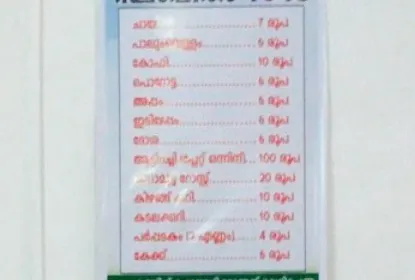 ചായ 7 രൂപ
പാലുംവെള്ളം 6 രൂപ
കോഫി 10 രൂപ
പൊറോട്ട 6 രൂപ
അപ്പം 6 രൂപ
ഇടിയപ്പം 6 രൂപ
ദോശ 6 രൂപ
ആട്ടിറച്ചി പ്ലേറ്റ് ഒന്നിന് 100 രൂപ
റോസ്റ്റ് 20 രൂപ
കിഴങ്ങ് കറി 10 രൂപ
കടലക്കറി 10 രൂപ
പർപ്പടകം (2 എണ്ണം) 4 രൂപ
കേക്ക് 6 രൂപ